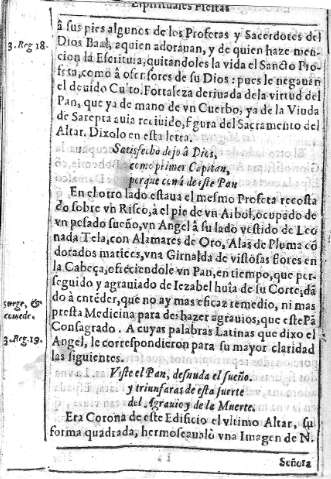 Espirituales Fiestas
3. Reg 18.
â sus pies algunos de los Profetas y Sacerdotes del
Dios Baal, aquien adorauan, y de quien haze men-
cion la Escritura, quitandoles la vida el Sancto Pro-
feta, como â ofensores de su Dios: pues le negauan
el deuido Culto. Fortaleza deriuada de la virtud del
Pan, que ya de mano de vn Cuerbo, ya de la Viuda
de Sarepta auia reciuido, figura del Sacramento del
Altar. Dixolo en esta letra.
Satisfecho dejo â Dios,
como primer Capitan,
porque cené de este Pan
En el otro lado estaua el mesmo Profeta recosta
do sobre vn Risco, â el pie de vn Arbol, ocupado de
vn pesado sueño, vn Angel â su lado vestido de Leo
nada Tela, con Alamares de Oro, Alas de Pluma cõ
dorados matices, vna Girnalda de vistosas flores en
la Cabeça, ofreciendole vn Pan, en tiempo, que per-
seguido y agrauiado de Iezabel huia de su Corte; dã
do â entēder, que no ay mas eficaz remedio, ni mas
surge, &
presta Medicina para deshazer agrauios, que este Pã
comede.
Consagrado. A cuyas palabras Latinas que dixo el
3. Reg. 19.
Angel, le correspondieron para su mayor claridad
las siguientes.
Viste el Pan, desnuda el sueño.
y triunfaras de esta suerte
del Agrauio y de la Muerte.
Era Corona de este Edificio el vltimo Altar, su
forma quadrada, hermoseaualo vna Imagen de N.
Señora